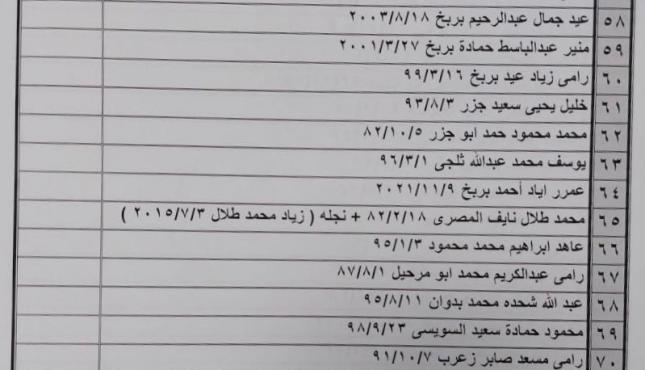 ٥٨ عيد جمال عبدالرحيم بربخ ٢٠٠٣/٨/١٨
٥٩ منير عبدالباسط حمادة بربخ ٢٠٠١/٣/٢٧
٦٠ رامى زياد عيد بربخ ٩٩/٣/١٦
٦١ خليل يحيى سعيد جزر ٩٣/٨/٣
٦٢ محمد محمود حمد ابو جزر ٨٢/١٠/٥
٦٣ يوسف محمد عبدالله ثلجى ٩٦/٣/١
٦٤ عمرر اياد أحمد بربخ ٢٠٢١/١١/٩
٦٥ محمد طلال نايف المصرى ٨٢/٢/١٨ + نجله ( زياد محمد طلال ٢٠١٥/٧/٣ )
٦٦ عاهد ابراهيم محمد محمود ٩٥/١/٣
٦٧ رامى عبدالكريم محمد ابو مرحيل ٨٧/٨/١
٦٨ عبد الله شحده محمد بدوان ٩٥/٨/١١
٦٩ محمود حمادة سعيد السويسى ٩٨/٩/٢٣
٧٠ رامى مسعد صابر زعرب ٩١/١٠/٧